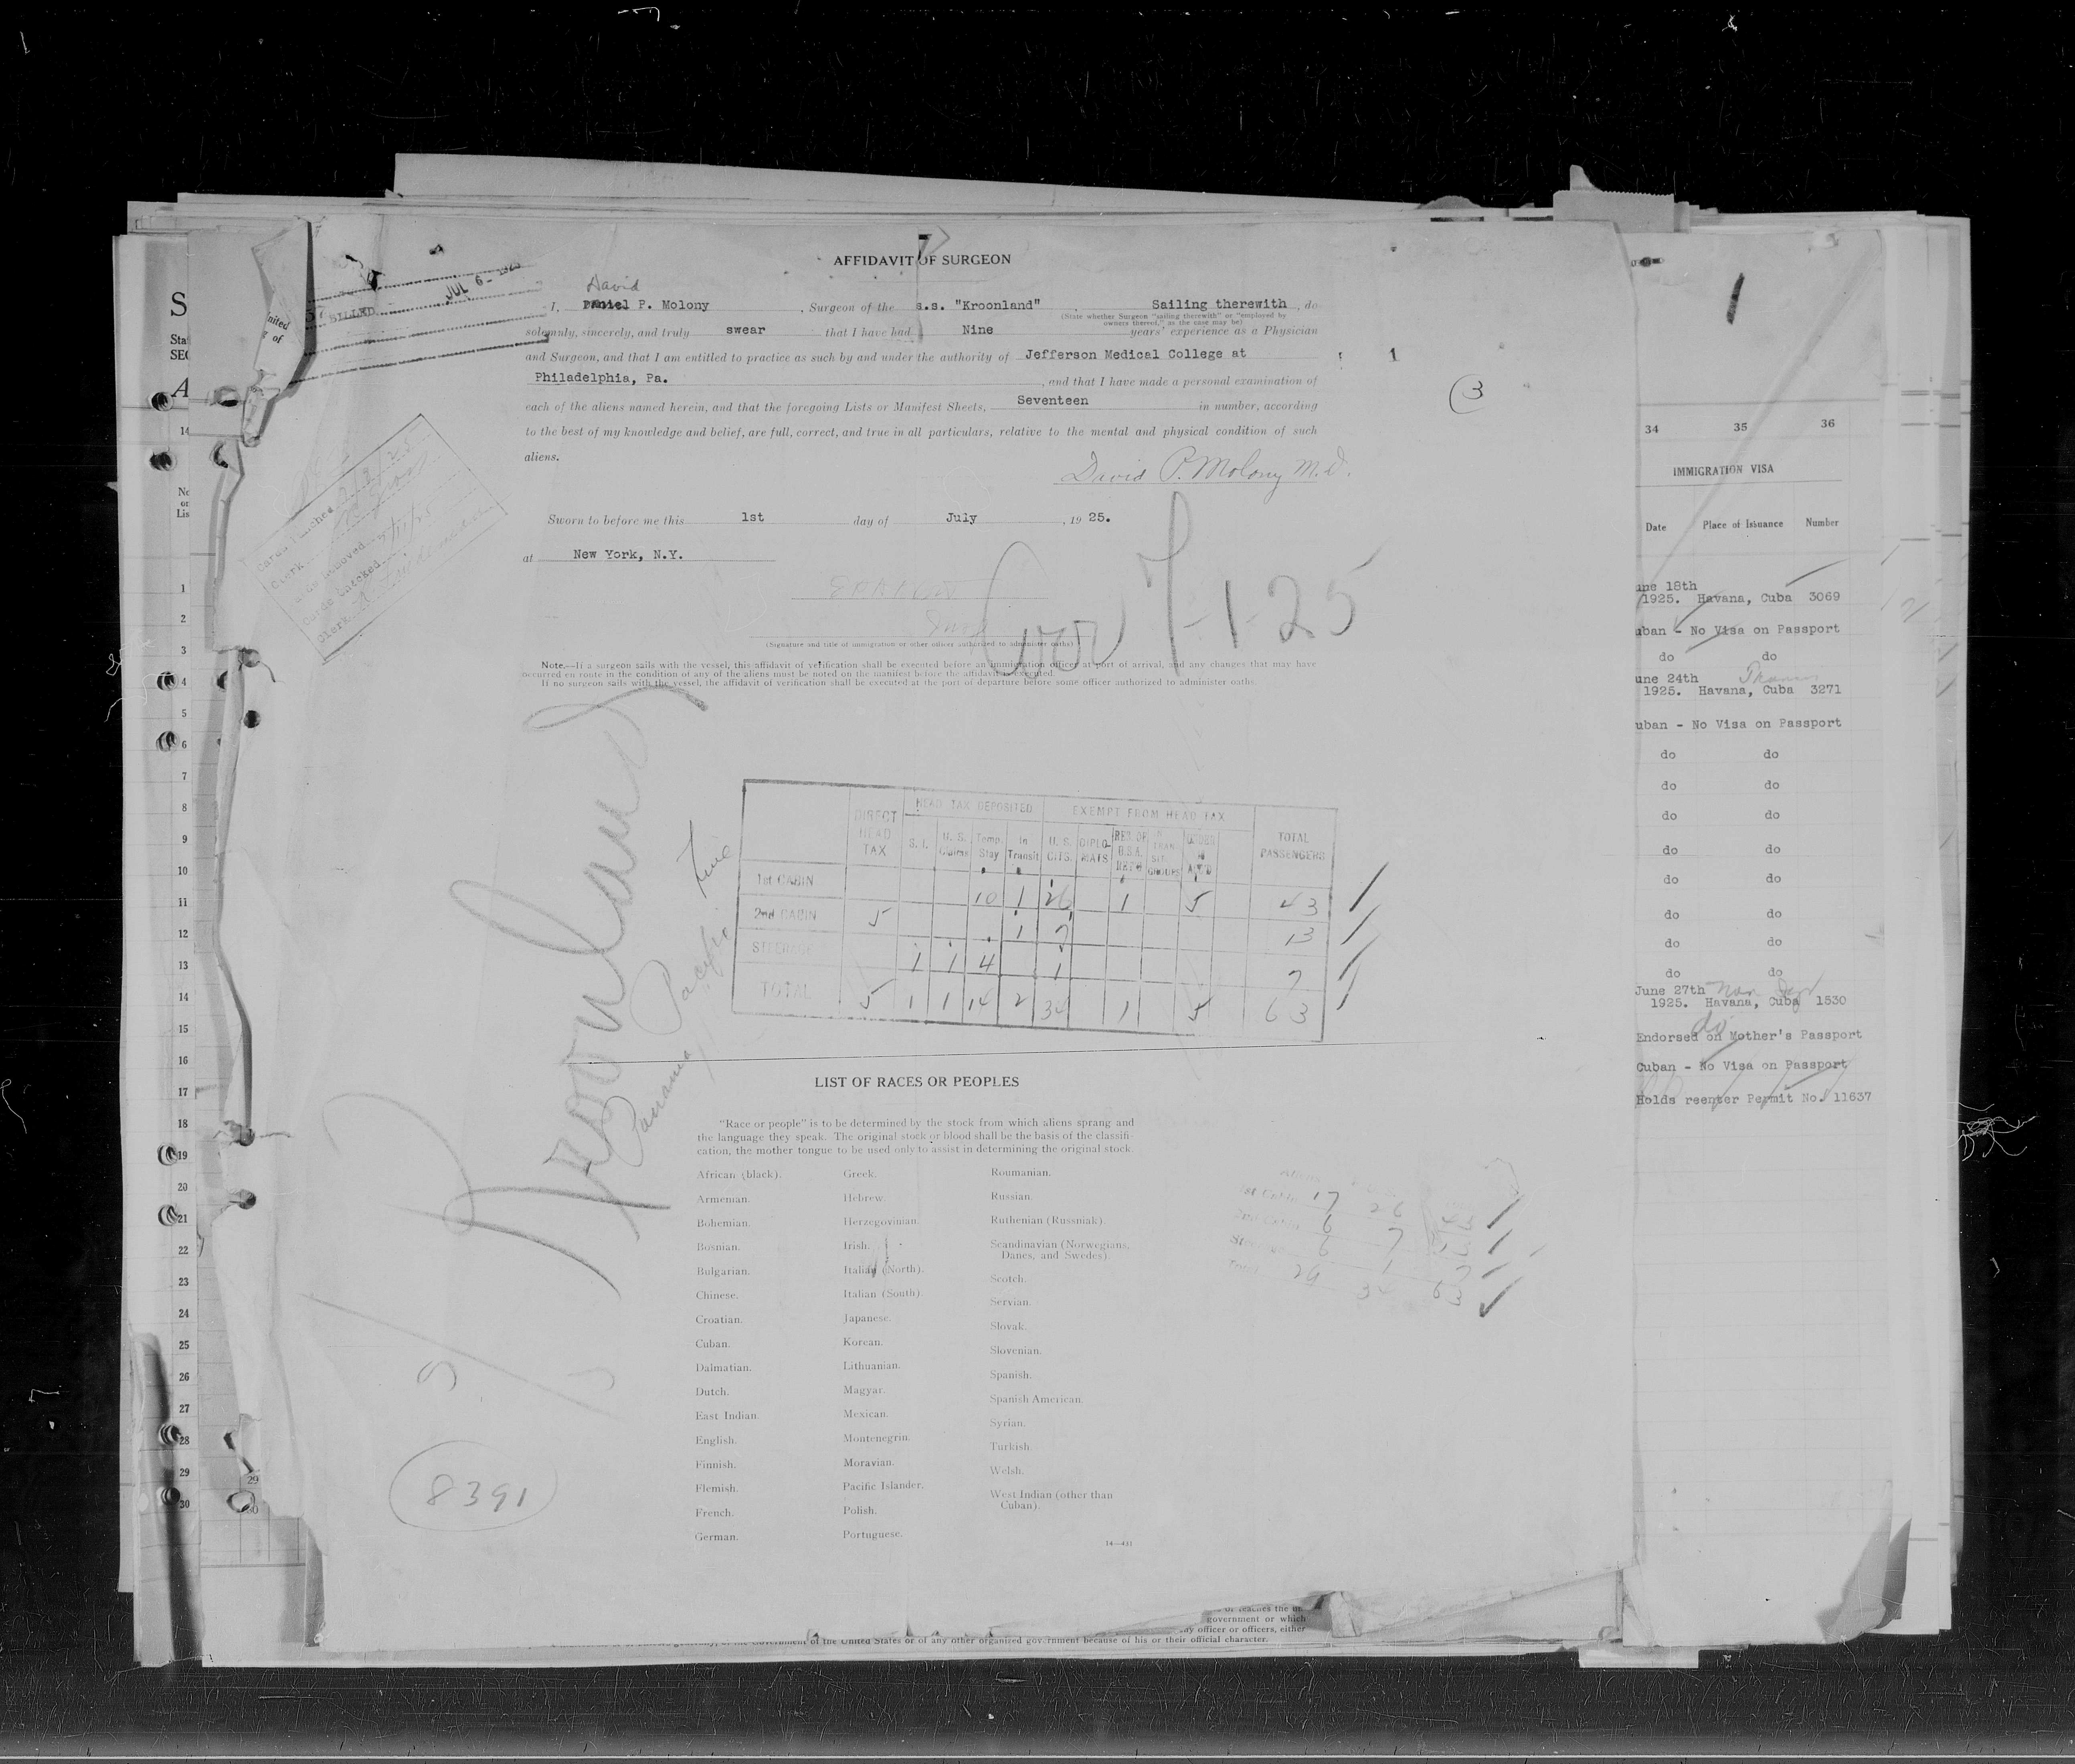 AFFIDAVIT OF SURGEON
David
I, Daniel P. Molony, Surgeon of the s.s. "Kroonland", Sailing therewith, do
(State whether Surgeon "sailing therewith" or "employed by
owners thereof," as the case may be)
solemnly, sincerely, and truly swear that I have had Nine years' experience as a Physician
and Surgeon, and that I am entitled to practice as such by and under the authority of Jefferson Medical College at
Philadelphia, Pa., and that I have made a personal examination of
each of the aliens named herein, and that the foregoing Lists or Manifest Sheets, Seventeen in number, according
to the best of my knowledge and belief, are full, correct, and true in all particulars, relative to the mental and physical condition of such
aliens.
David P. Molony M.D.
Sworn to before me this 1st day of July, 1925.
at New York, N.Y.
7-1-25
(Signature and title of immigration or other officer authorized to administer oaths)
Note.—If a surgeon sails with the vessel, this affidavit of verification shall be executed before an immigration officer at port of arrival, and any changes that may have
occurred en route in the condition of any of the aliens must be noted on the manifest before the affidavit is executed.
If no surgeon sails with the vessel, the affidavit of verification shall be executed at the port of departure before some officer authorized to administer oaths.
BILLED
JUL 6- 1925
1
3
Kroonland
Panama Pacific Line
DIRECT HEAD TAX
HEAD TAX DEPOSITED
EXEMPT FROM HEAD TAX
TOTAL PASSENGERS
S. I.
U. S. Claims
Temp. Stay
In Transit
U. S. CITS.
DIPLO-MATS
1st CABIN 10 1 26 1 5 43
2nd CABIN 5 1 7 13
STEERAGE 1 1 4 1 7
TOTAL 5 1 1 14 2 34 1 5 63
LIST OF RACES OR PEOPLES
"Race or people" is to be determined by the stock from which aliens sprang and
the language they speak. The original stock or blood shall be the basis of the classifi-
cation, the mother tongue to be used only to assist in determining the original stock.
African (black).
Armenian.
Bohemian.
Bosnian.
Bulgarian.
Chinese.
Croatian.
Cuban.
Dalmatian.
Dutch.
East Indian.
English.
Finnish.
Flemish.
French.
German.
Greek.
Hebrew.
Herzegovinian.
Irish.
Italian (North).
Italian (South).
Japanese.
Korean.
Lithuanian.
Magyar.
Mexican.
Montenegrin.
Moravian.
Pacific Islander.
Polish.
Portuguese.
Roumanian.
Russian.
Ruthenian (Russniak).
Scandinavian (Norwegians,
Danes, and Swedes).
Scotch.
Servian.
Slovak.
Slovenian.
Spanish.
Spanish American.
Syrian.
Turkish.
Welsh.
West Indian (other than
Cuban).
14—431
17 26
6 7
6 1 7
29 34 63
8391
1
34 35 36
IMMIGRATION VISA
Date Place of Issuance Number
une 18th
1925. Havana, Cuba 3069
uban - No Visa on Passport
do do
une 24th
1925. Havana, Cuba 3271
uban - No Visa on Passport
do do
do do
do do
do do
do do
do do
do do
do do
June 27th
1925. Havana, Cuba 1530
do
Endorsed on Mother's Passport
Cuban - No Visa on Passport
Holds reenter Permit No. 11637
1
2
3
4
5
6
7
8
9
10
11
12
13
14
15
16
17
18
19
20
21
22
23
24
25
26
27
28
29
30
government or which
officer or officers, either
of the United States or of any other organized government because of his or their official character.